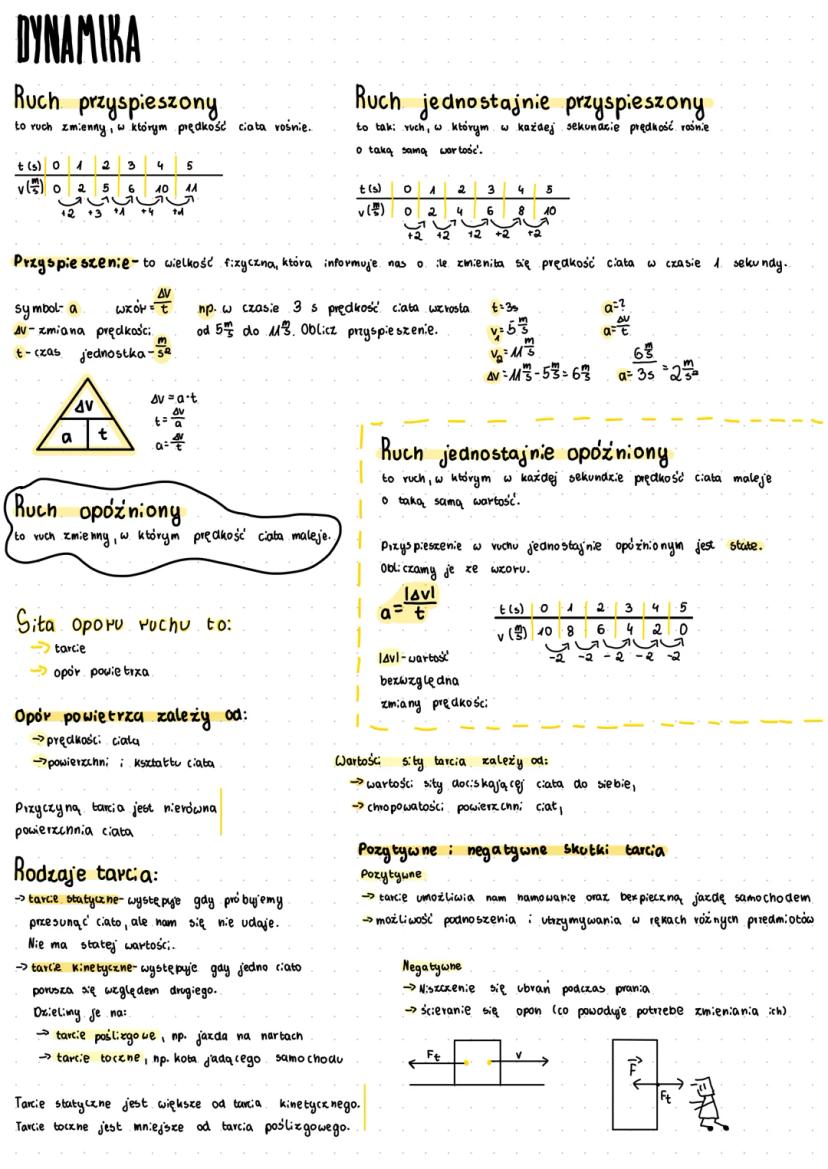 DYNAMIKA
Ruch przyspieszony
to ruch zmienny, w którym prędkość ciała rośnie.
t(s) 0 1 2 3 4 5
v(m/s) 0 2 5 6 10 11
+2 +3 +1 +4 +1
Ruch jednostajnie przyspieszony
to taki ruch, w którym w każdej sekundzie prędkość rośnie
o taką samą wartość.
t(s) 0 1 2 3 4 5
v(m/s) 0 2 4 6 8 10
+2 +2 +2 +2 +2
Przyspieszenie - to wielkość fizyczna, która informuje nas o ile zmieniła się prędkość ciała w czasie 1 sekundy.
symbol - a wzór = Δv/t
Δv - zmiana prędkości
t - czas jednostka - m/s²
np. w czasie 3 s prędkość ciała wzrosła
od 5 m/s do 11 m/s. Oblicz przyspieszenie.
t = 3s
v₁ = 5 m/s
v₂ = 11 m/s
Δv = 11 m/s - 5 m/s = 6 m/s
a = ?
a = Δv/t
a = 6 m/s / 3s = 2 m/s²
Δv
a t
Δv = a·t
t = Δv/a
a = Δv/t
Ruch opóźniony
to ruch zmienny, w którym prędkość ciała maleje.
Ruch jednostajnie opóźniony
to ruch, w którym w każdej sekundzie prędkość ciała maleje
o taką samą wartość.
Przyspieszenie w ruchu jednostajnie opóźnionym jest stałe.
Obliczamy je ze wzoru.
a = |Δv|/t
|Δv| - wartość
bezwzględna
zmiany prędkości
t(s) 0 1 2 3 4 5
v(m/s) 10 8 6 4 2 0
-2 -2 -2 -2 -2
Siła oporu ruchu to:
→ tarcie
→ opór powietrza
Opór powietrza zależy od:
→ prędkości ciała
→ powierzchni i kształtu ciała
Przyczyną tarcia jest nierówna
powierzchnia ciała
Wartości siły tarcia zależy od:
→ wartości siły dociskającej ciała do siebie,
→ chropowatości powierzchni ciał,
Rodzaje tarcia:
→ tarcie statyczne - występuje gdy próbujemy
przesunąć ciało, ale nam się nie udaje.
Nie ma stałej wartości.
→ tarcie kinetyczne - występuje gdy jedno ciało
porusza się względem drugiego.
Dzielimy je na:
→ tarcie poślizgowe, np. jazda na nartach
→ tarcie toczne, np. koła jadącego samochodu
Tarcie statyczne jest większe od tarcia kinetycznego.
Tarcie toczne jest mniejsze od tarcia poślizgowego.
Pozytywne i negatywne skutki tarcia
Pozytywne
→ tarcie umożliwia nam hamowanie oraz bezpieczną jazdę samochodem
→ możliwość podnoszenia i utrzymywania w rękach różnych przedmiotów
Negatywne
→ Niszczenie się ubrań podczas prania
→ ścieranie się opon (co powoduje potrzebę zmieniania ich)
Ft v
F
Ft